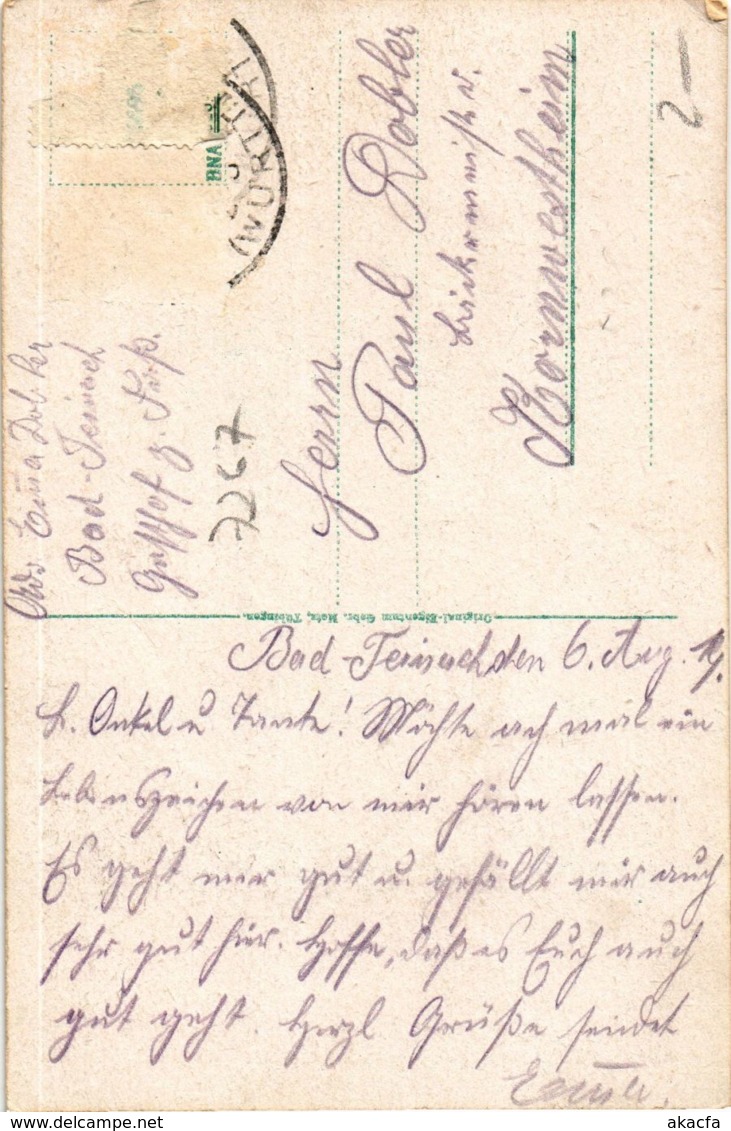 Bad-Teinach den 6. Aug. 19.
L. Onkel u. Tante! Möchte auch mal ein
Lebenszeichen von mir hören lassen.
Es geht mir gut u. gefällt mir auch
sehr gut hier. Hoffe, daß es Euch auch
gut geht. Herzl Grüße sendet
Emma.
Abs. Emma Dobler
Bad-Teinach
Gasthof z.
7267
Herrn
Paul Dobler
Kornwestheim
2-
(WÜRTT
Original-Eigentum Gebr. Metz, Tübingen.
akacfa
delcampe.net